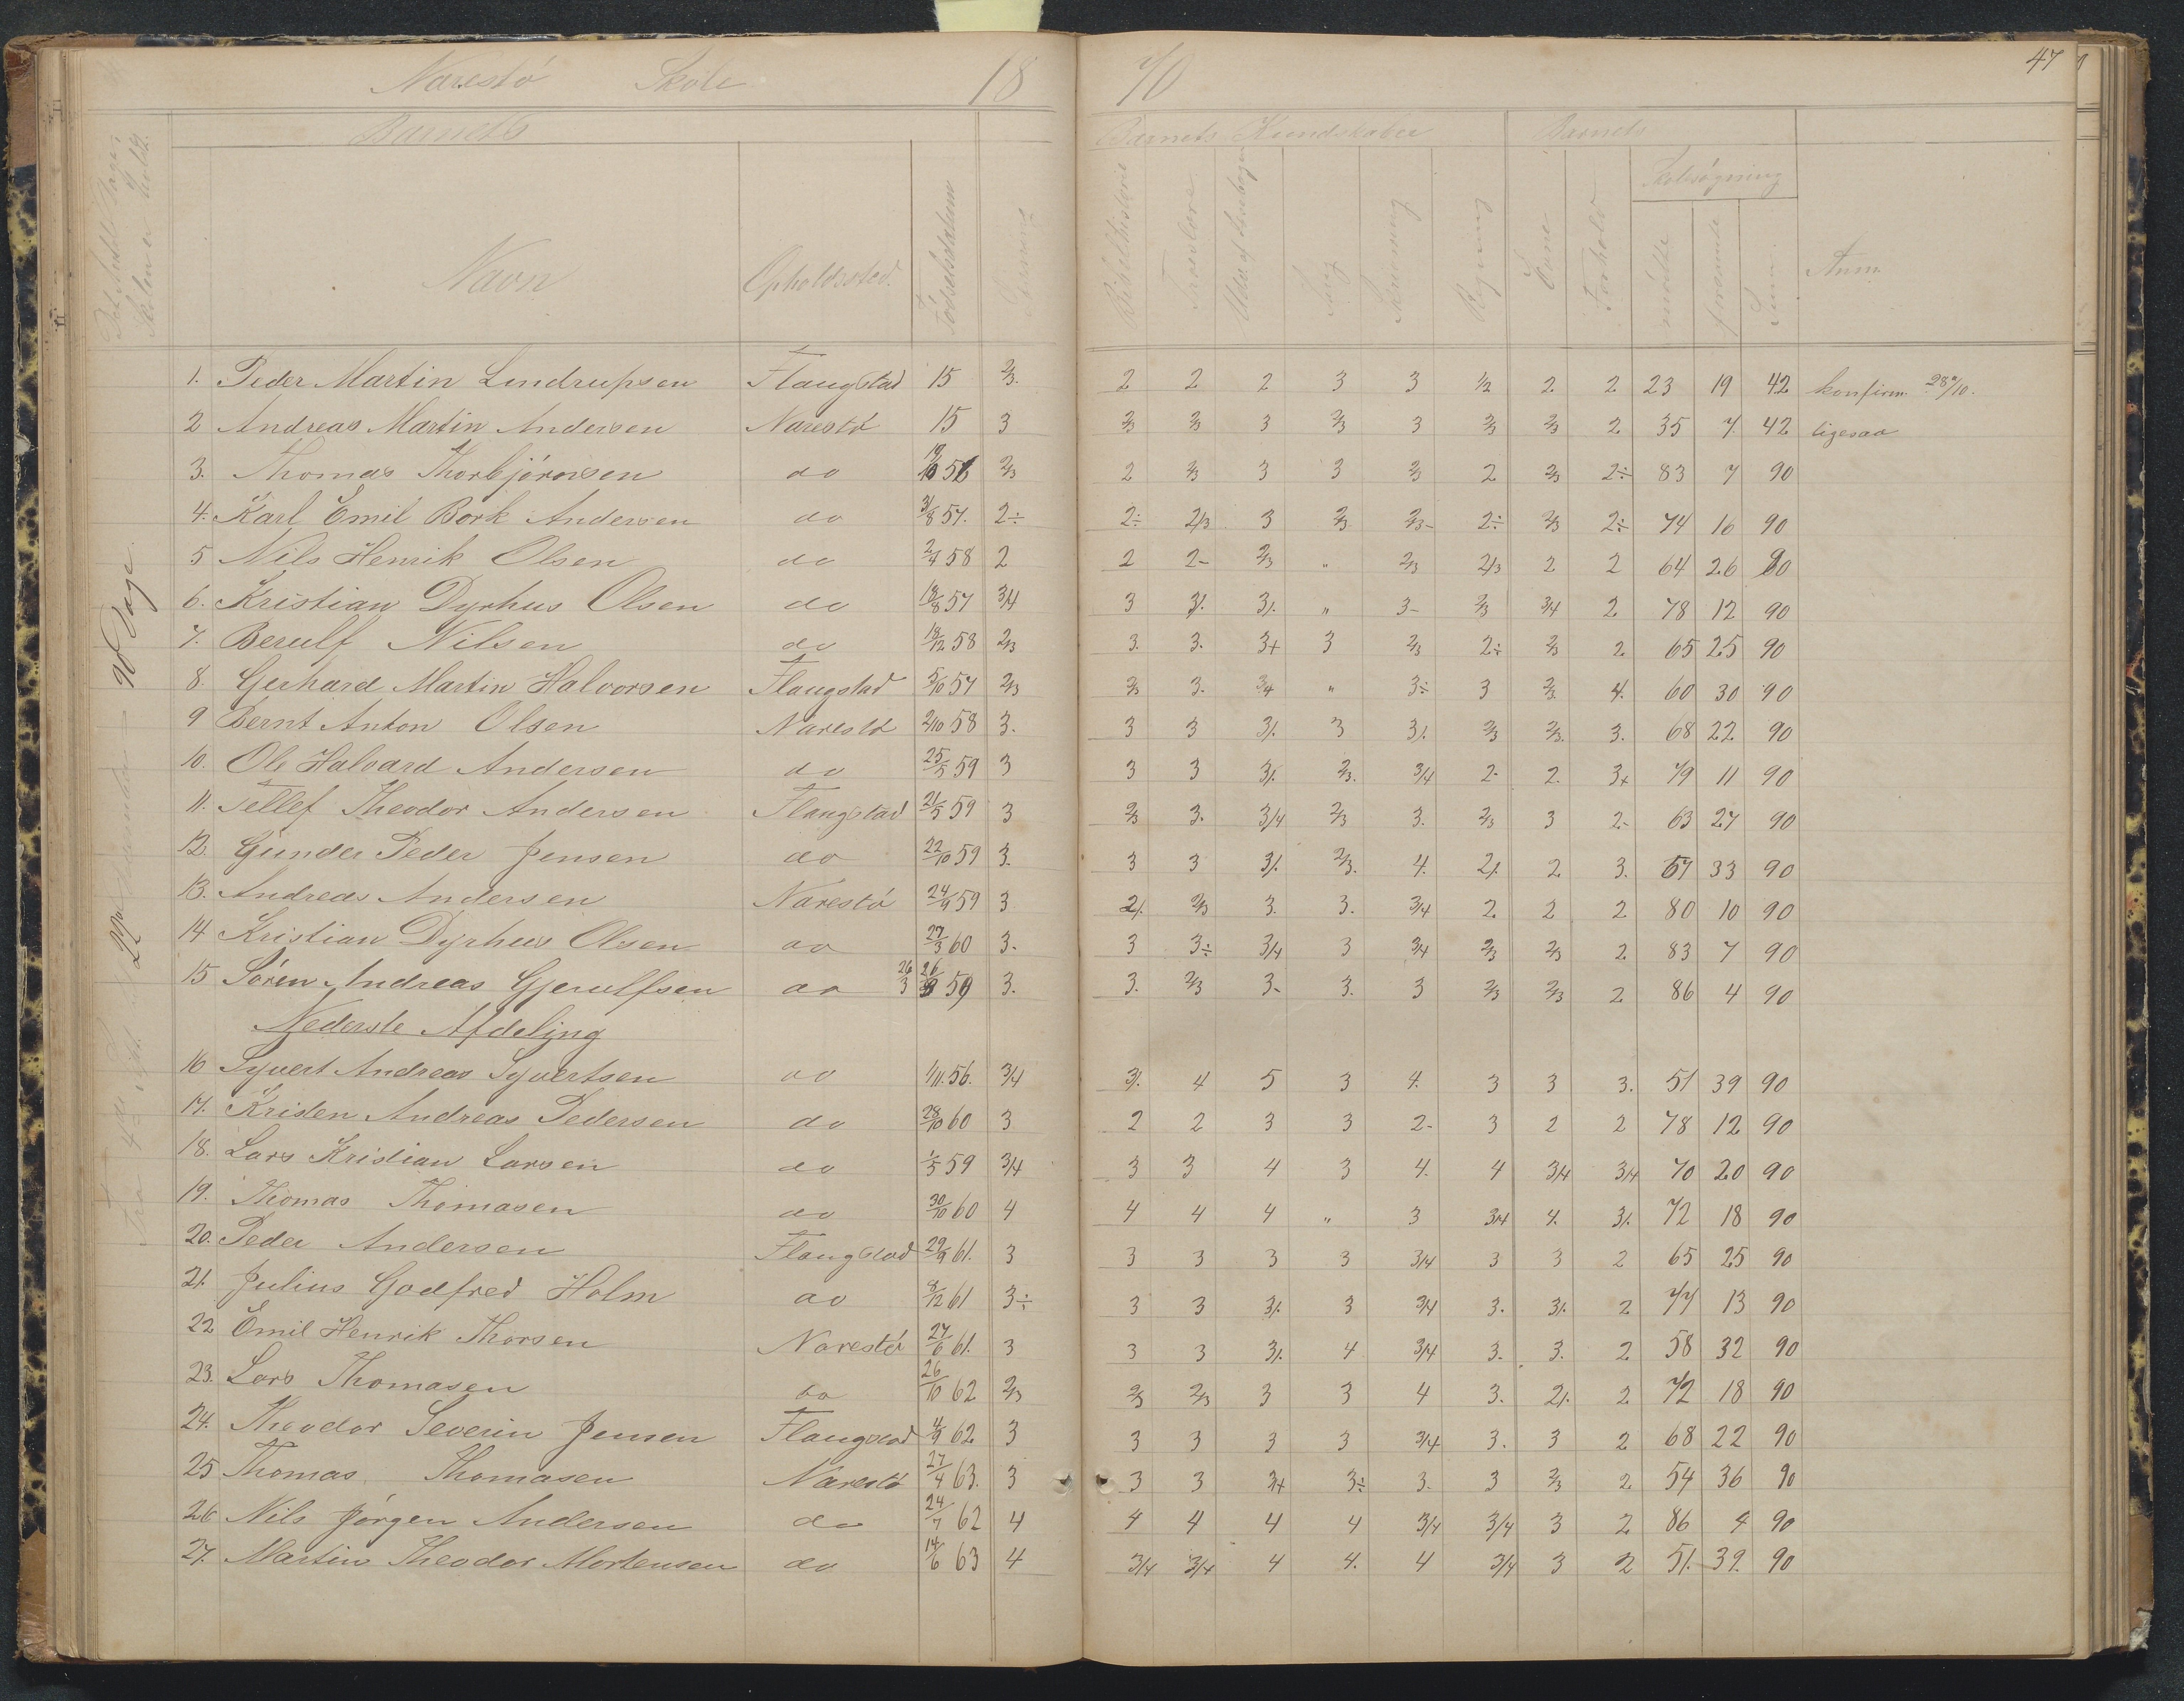 Narestö Skole 18 70 47
Barnets Barnets Kundskaber Barnets
Skolesøgning
Navn Opholdssted. Födselsdatum Læsning Bibelhistorie Troeslære Sang Skrivning Regning Evne Forhold mödte forsømte Sum Anm.
Fra 4de 22de 90 Dage.
1. Peder Martin Lindrupsen Flaugstad 15 2/3. 2 2 2 3 3 1/2 2 2 23 19 42 konfirm. 28 9/10.
2 Andreas Martin Andersen Narestö 15 3 2/3 2/3 3 2/3 3 2/3 2/3 2 35 7 42 ligesaa
3. Thomas Thorbjörnsen do 56 2/3 2 2/3 3 3 2/3 2 2/3 2÷ 83 7 90
4. Karl Emil Bork Andersen do 31/8 57. 2÷ 2÷ 2/3 3 2/3 2/3- 2÷ 2/3 2÷ 74 16 90
5 Nils Henrik Olsen do 2/4 58 2 2 2- 2/3 " 2/3 2/3 2 2 64 26 90
6. Kristian Dyrhus Olsen do 18/8 57 3/4 3 3/. 3/. " 3- 2/3 3/4 2 78 12 90
7. Berulf Nilsen do 18/12 58 2/3 3. 3. 3+ 3 2/3 2÷ 2/3 2 65 25 90
8. Gerhard Martin Halvorsen Flaugstad 5/10 57 2/3 2/3 3. 3/4 " 3÷ 3 2/3. 4. 60 30 90
9 Bernt Anton Olsen Narestö 2/10 58 3. 3 3 3/. 3 3/. 2/3 2/3. 3. 68 22 90
10. Ole Halvard Andersen do 25/5 59 3 3 3 3/. 2/3. 3/4 2- 2. 3+ 79 11 90
11. Tellef Theodor Andersen Flaugstad 21/5 59 3 2/3 3. 3/4 2/3 3. 2/3 3 2- 63 27 90
12. Gunder Peder Jensen do 22/10 59 3. 3 3 3/. 2/3. 4. 2/. 2 3. 57 33 90
13. Andreas Andersen Narestö 24/9 59 3 2/. 2/3 3. 3. 3/4 2. 2 2 80 10 90
14 Kristian Dyrhus Olsen do 27/3 60 3. 3 3÷ 3/4 3 3/4 2/3 2/3 2 83 7 90
15 Sören Andreas Gjerulfsen do 26/3 59 3. 3. 2/3 3- 3. 3 2/3 2/3 2 86 4 90
Nederste Afdeling
16 Syvert Andreas Syvertsen do 1/11. 56. 3/4 3/. 4 5 3 4. 3 3 3. 51 39 90
17. Kristen Andreas Pedersen do 28/10 60 3 2 2 3 3 2- 3 2 2 78 12 90
18. Lars Kristian Larsen do 1/5 59 3/4 3 3 4 3 4. 4 3/4 3/4 70 20 90
19. Thomas Thomasen do 30/10 60 4 4 4 4 " 3 3/4 4. 3/. 72 18 90
20. Peder Andersen Flaugstad 29/9 61. 3 3 3 3 3 3/4 3 3 2 65 25 90
21. Julius Godfred Holm do 8/12 61 3÷ 3 3 3/. 3 3/4 3. 3/. 2 77 13 90
22 Emil Henrik Thorsen Narestö 27/6 61. 3 3 3 3/. 4 3/4 3. 3. 2 58 32 90
23. Lars Thomasen do 26/10 62 2/3 2/3 2/3 3 3 4 3. 2/. 2 72 18 90
24. Theodor Severin Jensen Flaugstad 4/9 62 3 3 3 3 3 3/4 3. 3 2 68 22 90
25 Thomas Thomasen Narestö 27/4 63. 3 3 3 3+ 3÷ 3- 3 2/3 2 54 36 90
26 Nils Jörgen Andersen do 24/7 62 4 4 4 4 4 3/4 3/4 3 2 86 4 90
27. Martin Theodor Mortensen do 14/6 63 4 3/4 3/4 4 4. 4 3/4 3 2 51. 39. 90